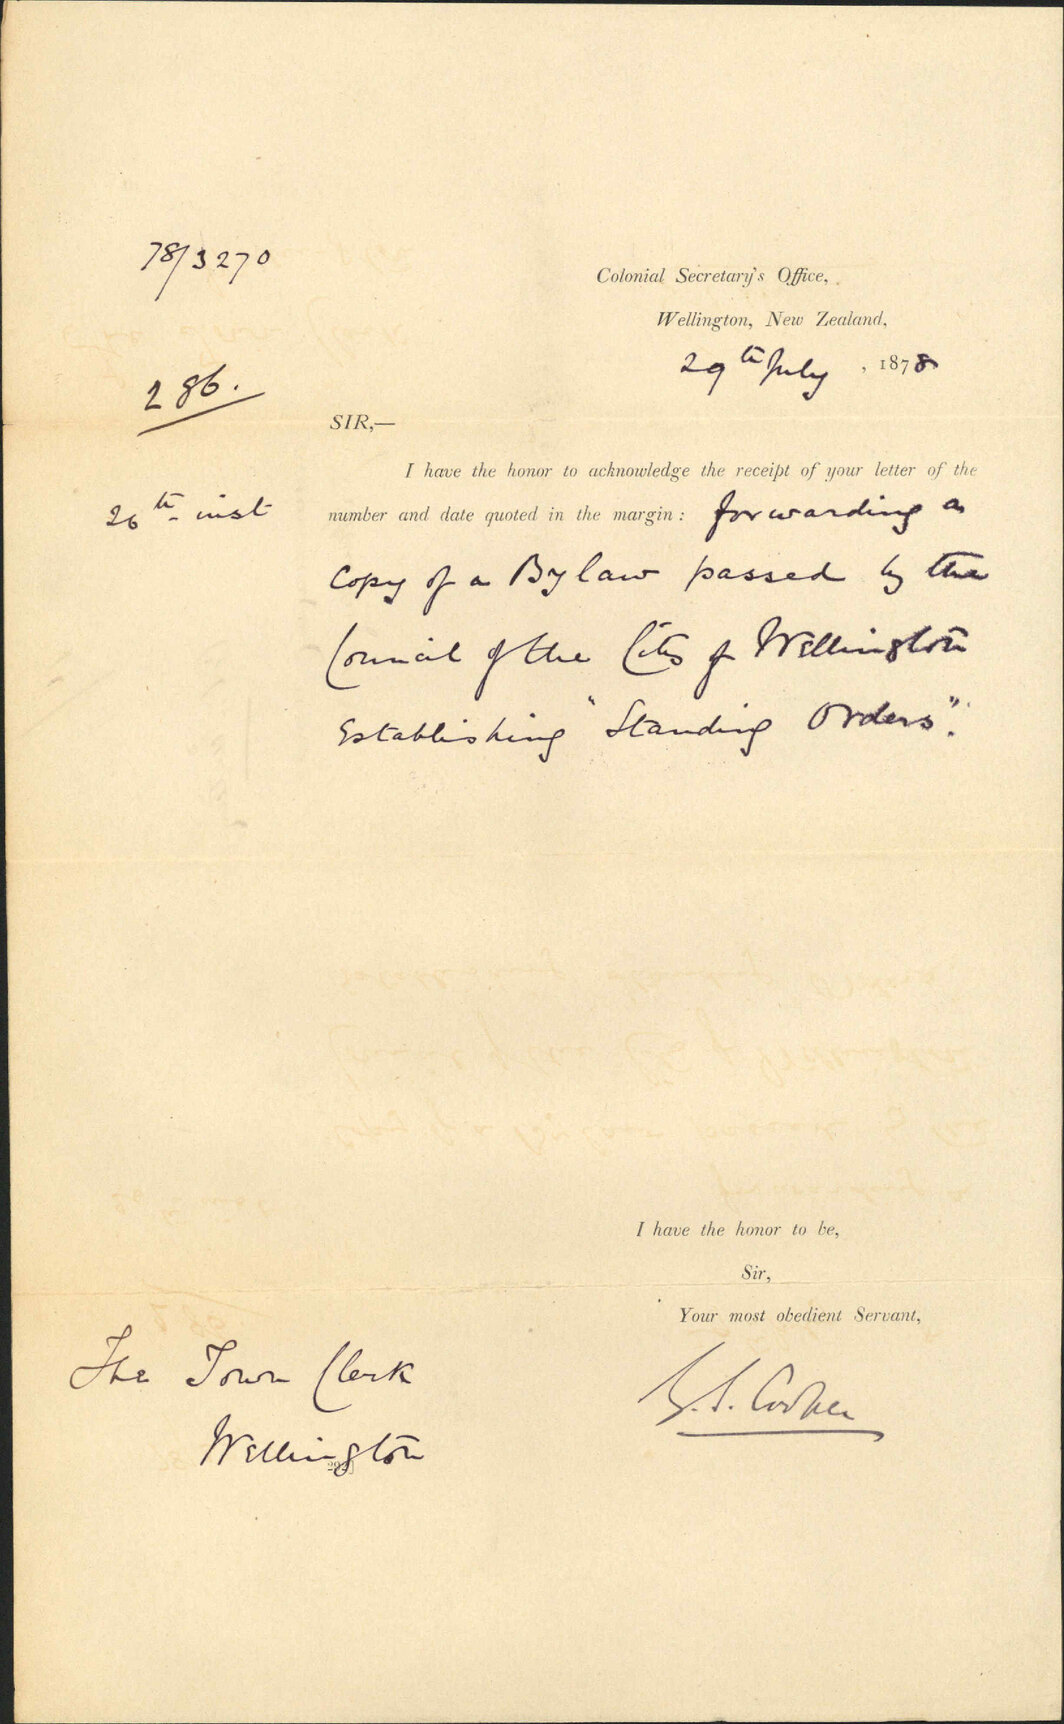 78/3270
Colonial Secretary's Office,
Wellington, New Zealand,
29th July, 1878
286.
SIR,—
I have the honor to acknowledge the receipt of your letter of the
26th inst
number and date quoted in the margin: forwarding a
Copy of a Bylaw passed by the
Council of the City of Wellington
Establishing "Standing Orders".
I have the honor to be,
Sir,
Your most obedient Servant,
The Town Clerk
G. S. Cooper
Wellington